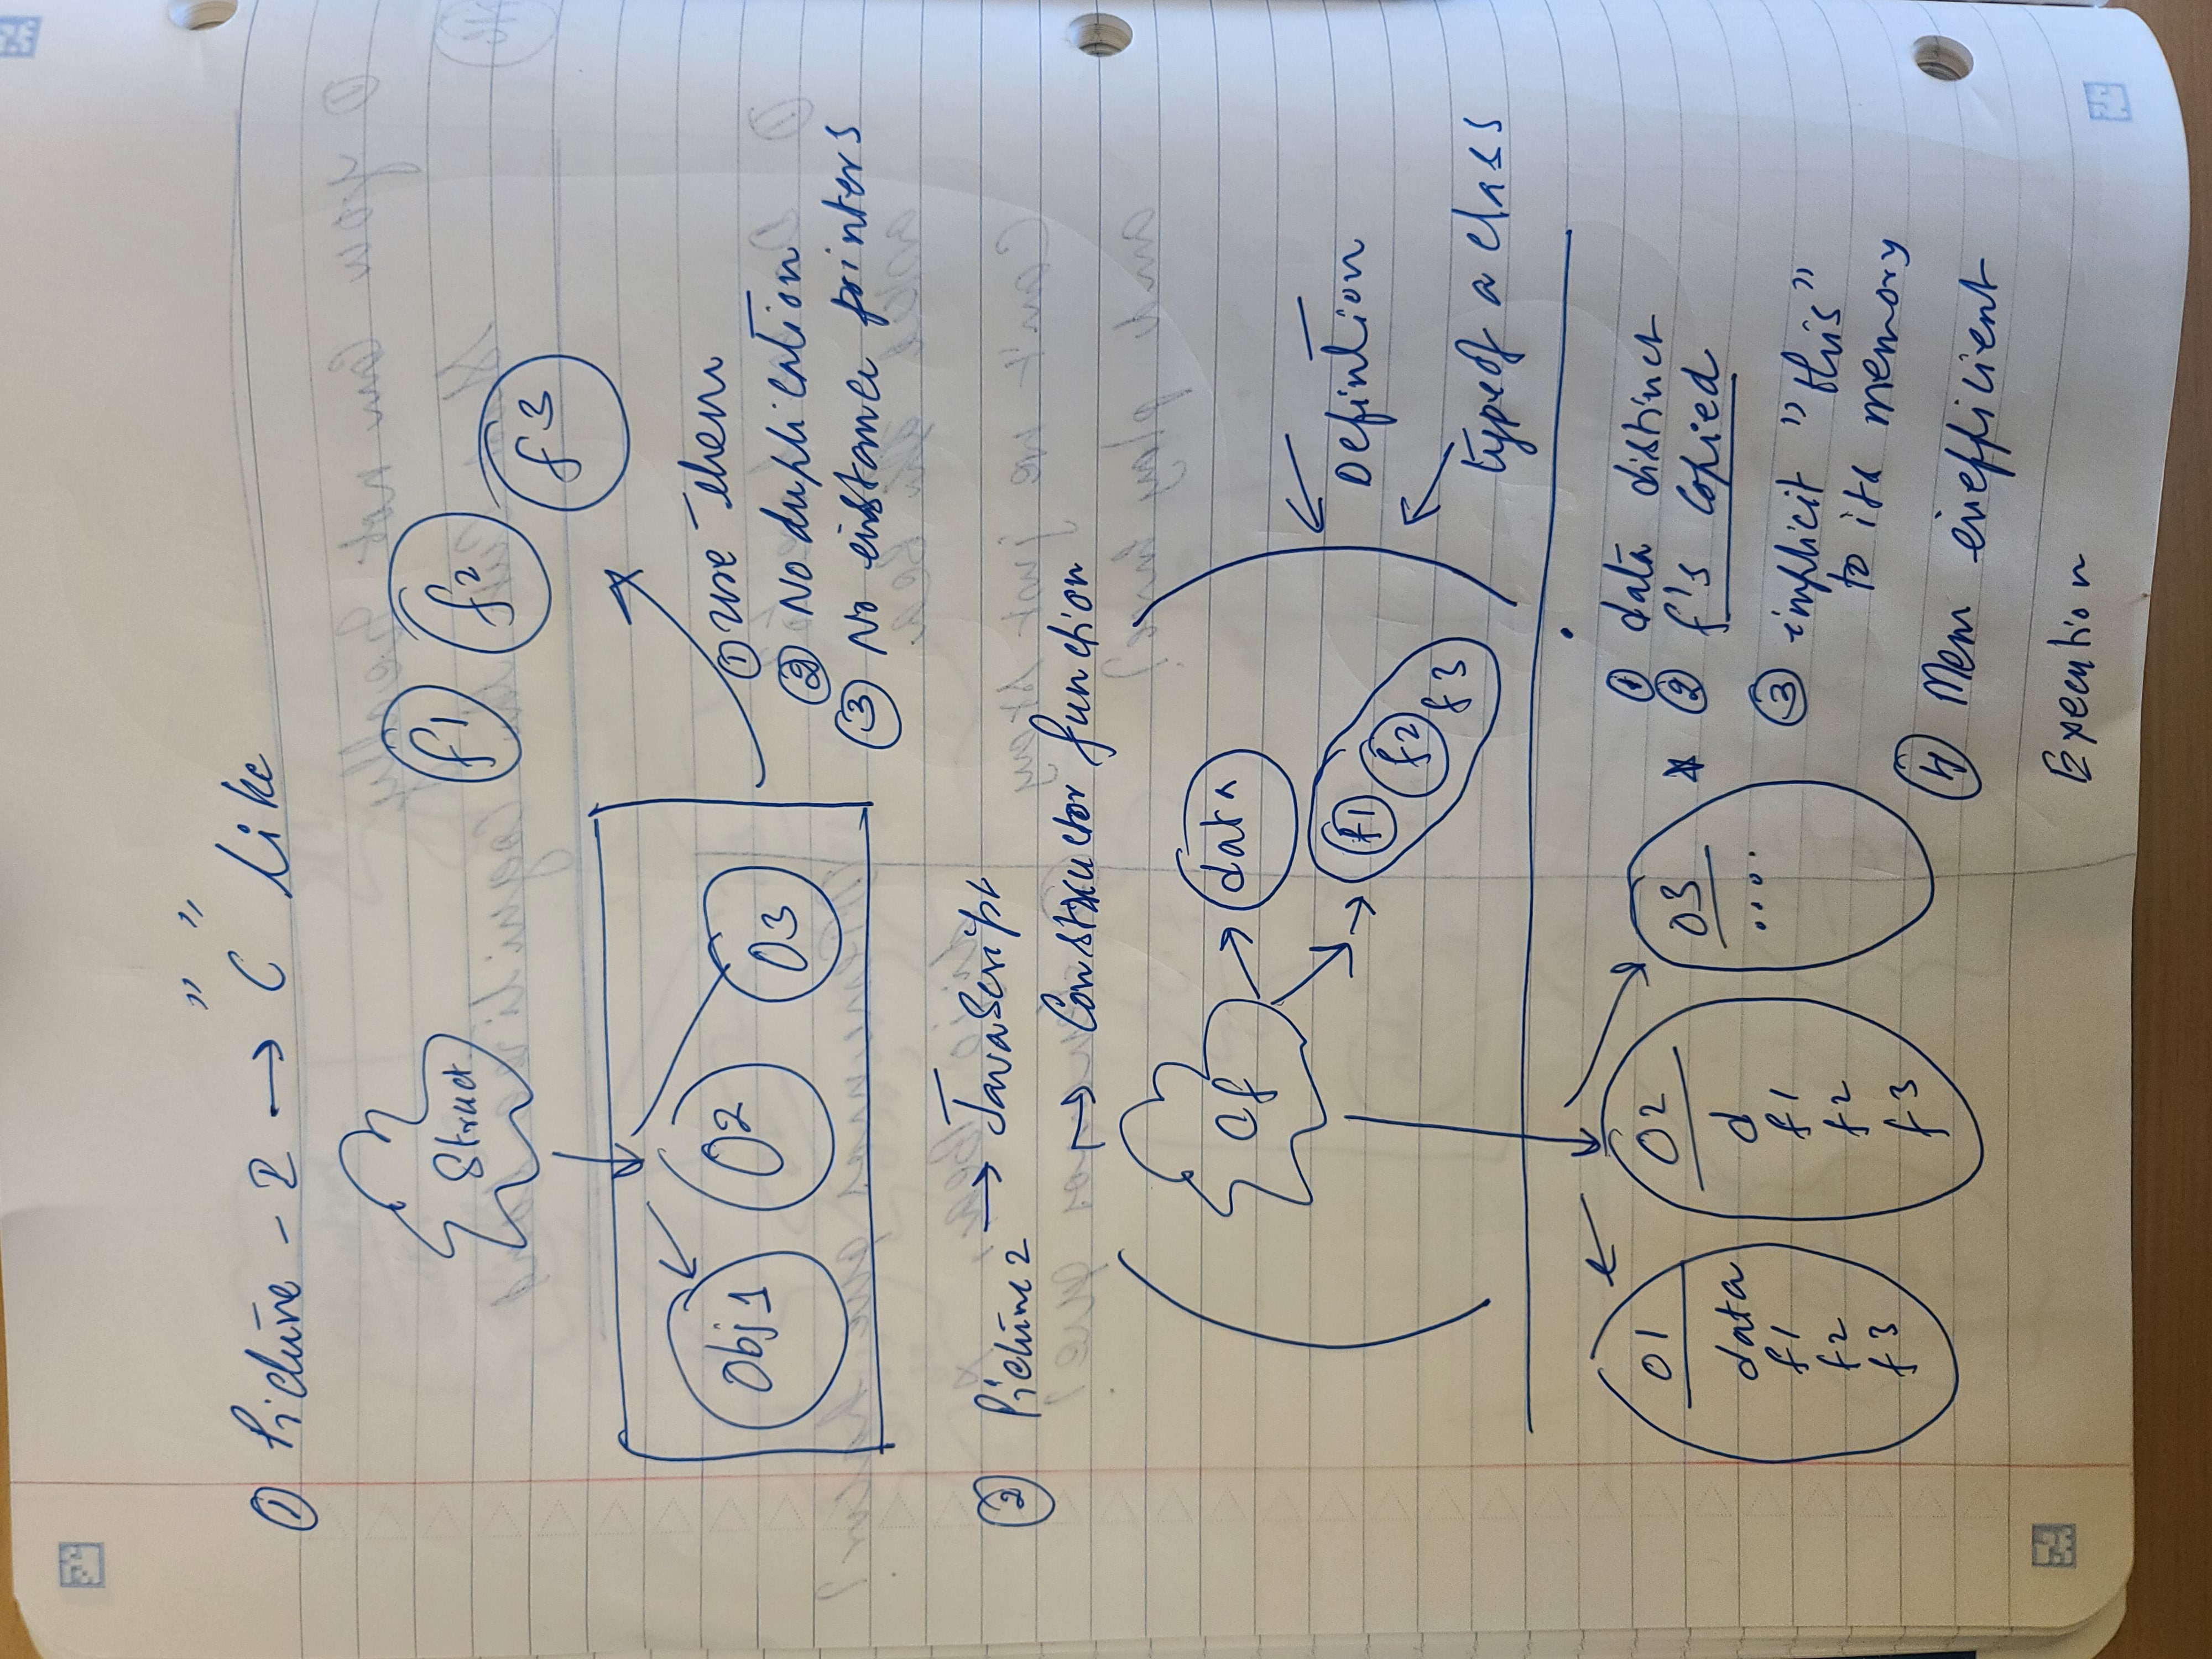 ① Picture - I → "C" like
Struct
f1 f2
f3
Obj1 O2 O3
① use them
② No duplication
③ No instance pointers
② Picture 2 → JavaScript
↦ Constructor function
Cf → data
→ f1
f2
f3
← Defintion
type of a class
O1 O2 O3
data d ....
f1 f1
f2 f2
f3 f3
① data distinct
* ② f's copied
③ implicit "this"
to its memory
④ Mem inefficient
Execution